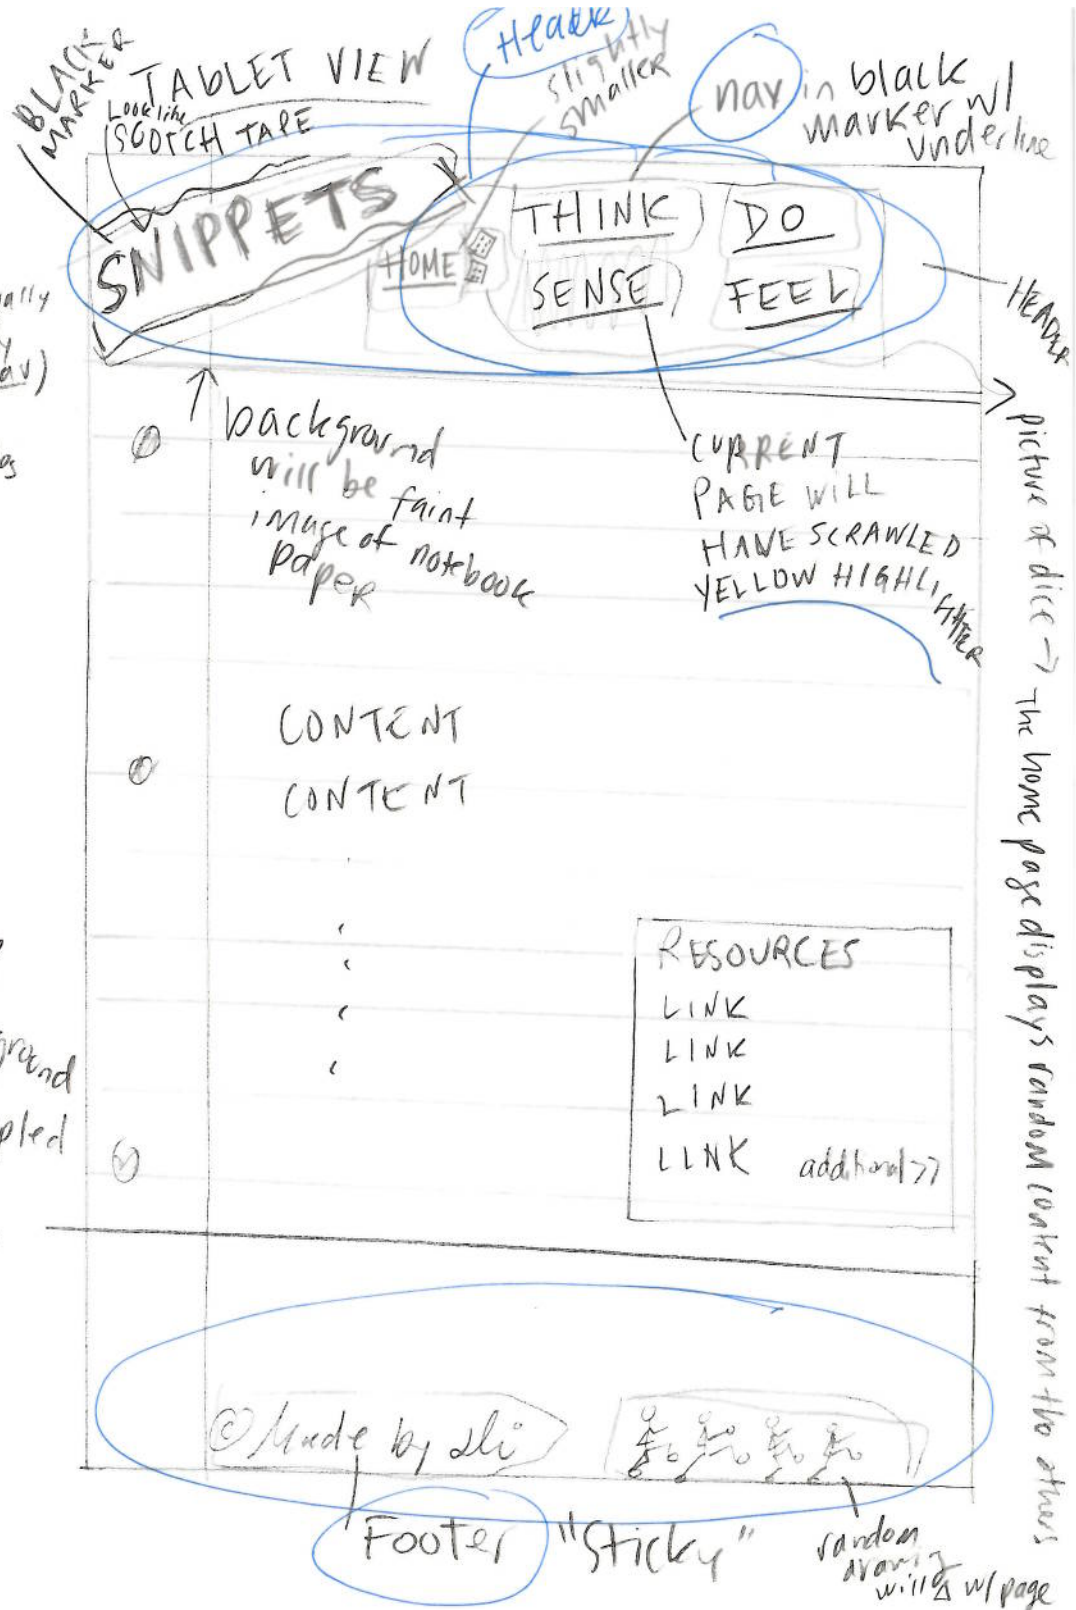 BLACK
MARKER
TABLET VIEW
Look like
SCOTCH TAPE
Header
slightly
smaller
nav in black
marker w/
underline
SNIPPETS
HOME
THINK
DO
SENSE
FEEL
HEADER
background
will be faint
image of notebook
paper
CURRENT
PAGE WILL
HAVE SCRAWLED
YELLOW HIGHLIGHTER
picture of dice -> The home page displays random content from the others
CONTENT
CONTENT
RESOURCES
LINK
LINK
LINK
LINK additional >>
© Made by
Footer "Sticky"
random
drawing
will Δ w/ page